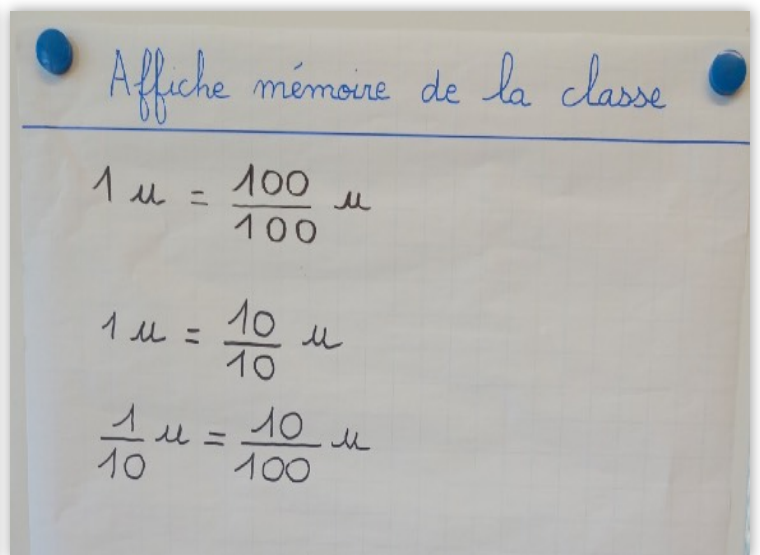 Affiche mémoire de la classe
1 u = 100/100 u
1 u = 10/10 u
1/10 u = 10/100 u